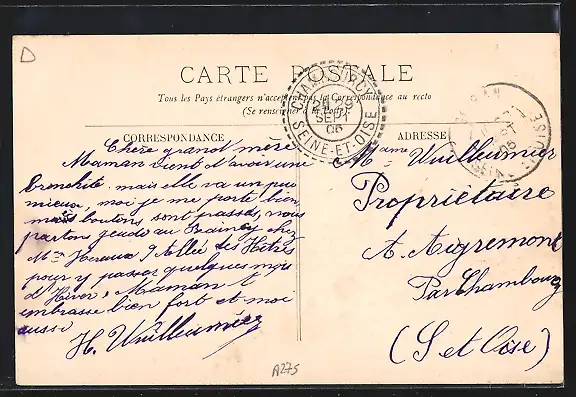 D
CARTE POSTALE
Tous les Pays étrangers n'acceptent pas la Correspondance au recto
(Se renseigner à la Poste).
CORRESPONDANCE
ADRESSE
CHAMBOURCY
29
SEPT
06
SEINE-ET-OISE
Chère grand mère
Maman vient d'avoir une
bronchite mais elle va un peu
mieux, moi je me porte bien
mes boutons sont passés, nous
partons jeudi au Raincy chez
Mme Heraux 9 Allée des Hêtres
pour y passer quelques mois
d'Hiver, Maman t
embrasse bien fort et moi
aussi
H. Vuilleumier
Madame Vuilleumier
Propriétaire
A. Aigremont
Par Chambourcy
(S et Oise)
A275